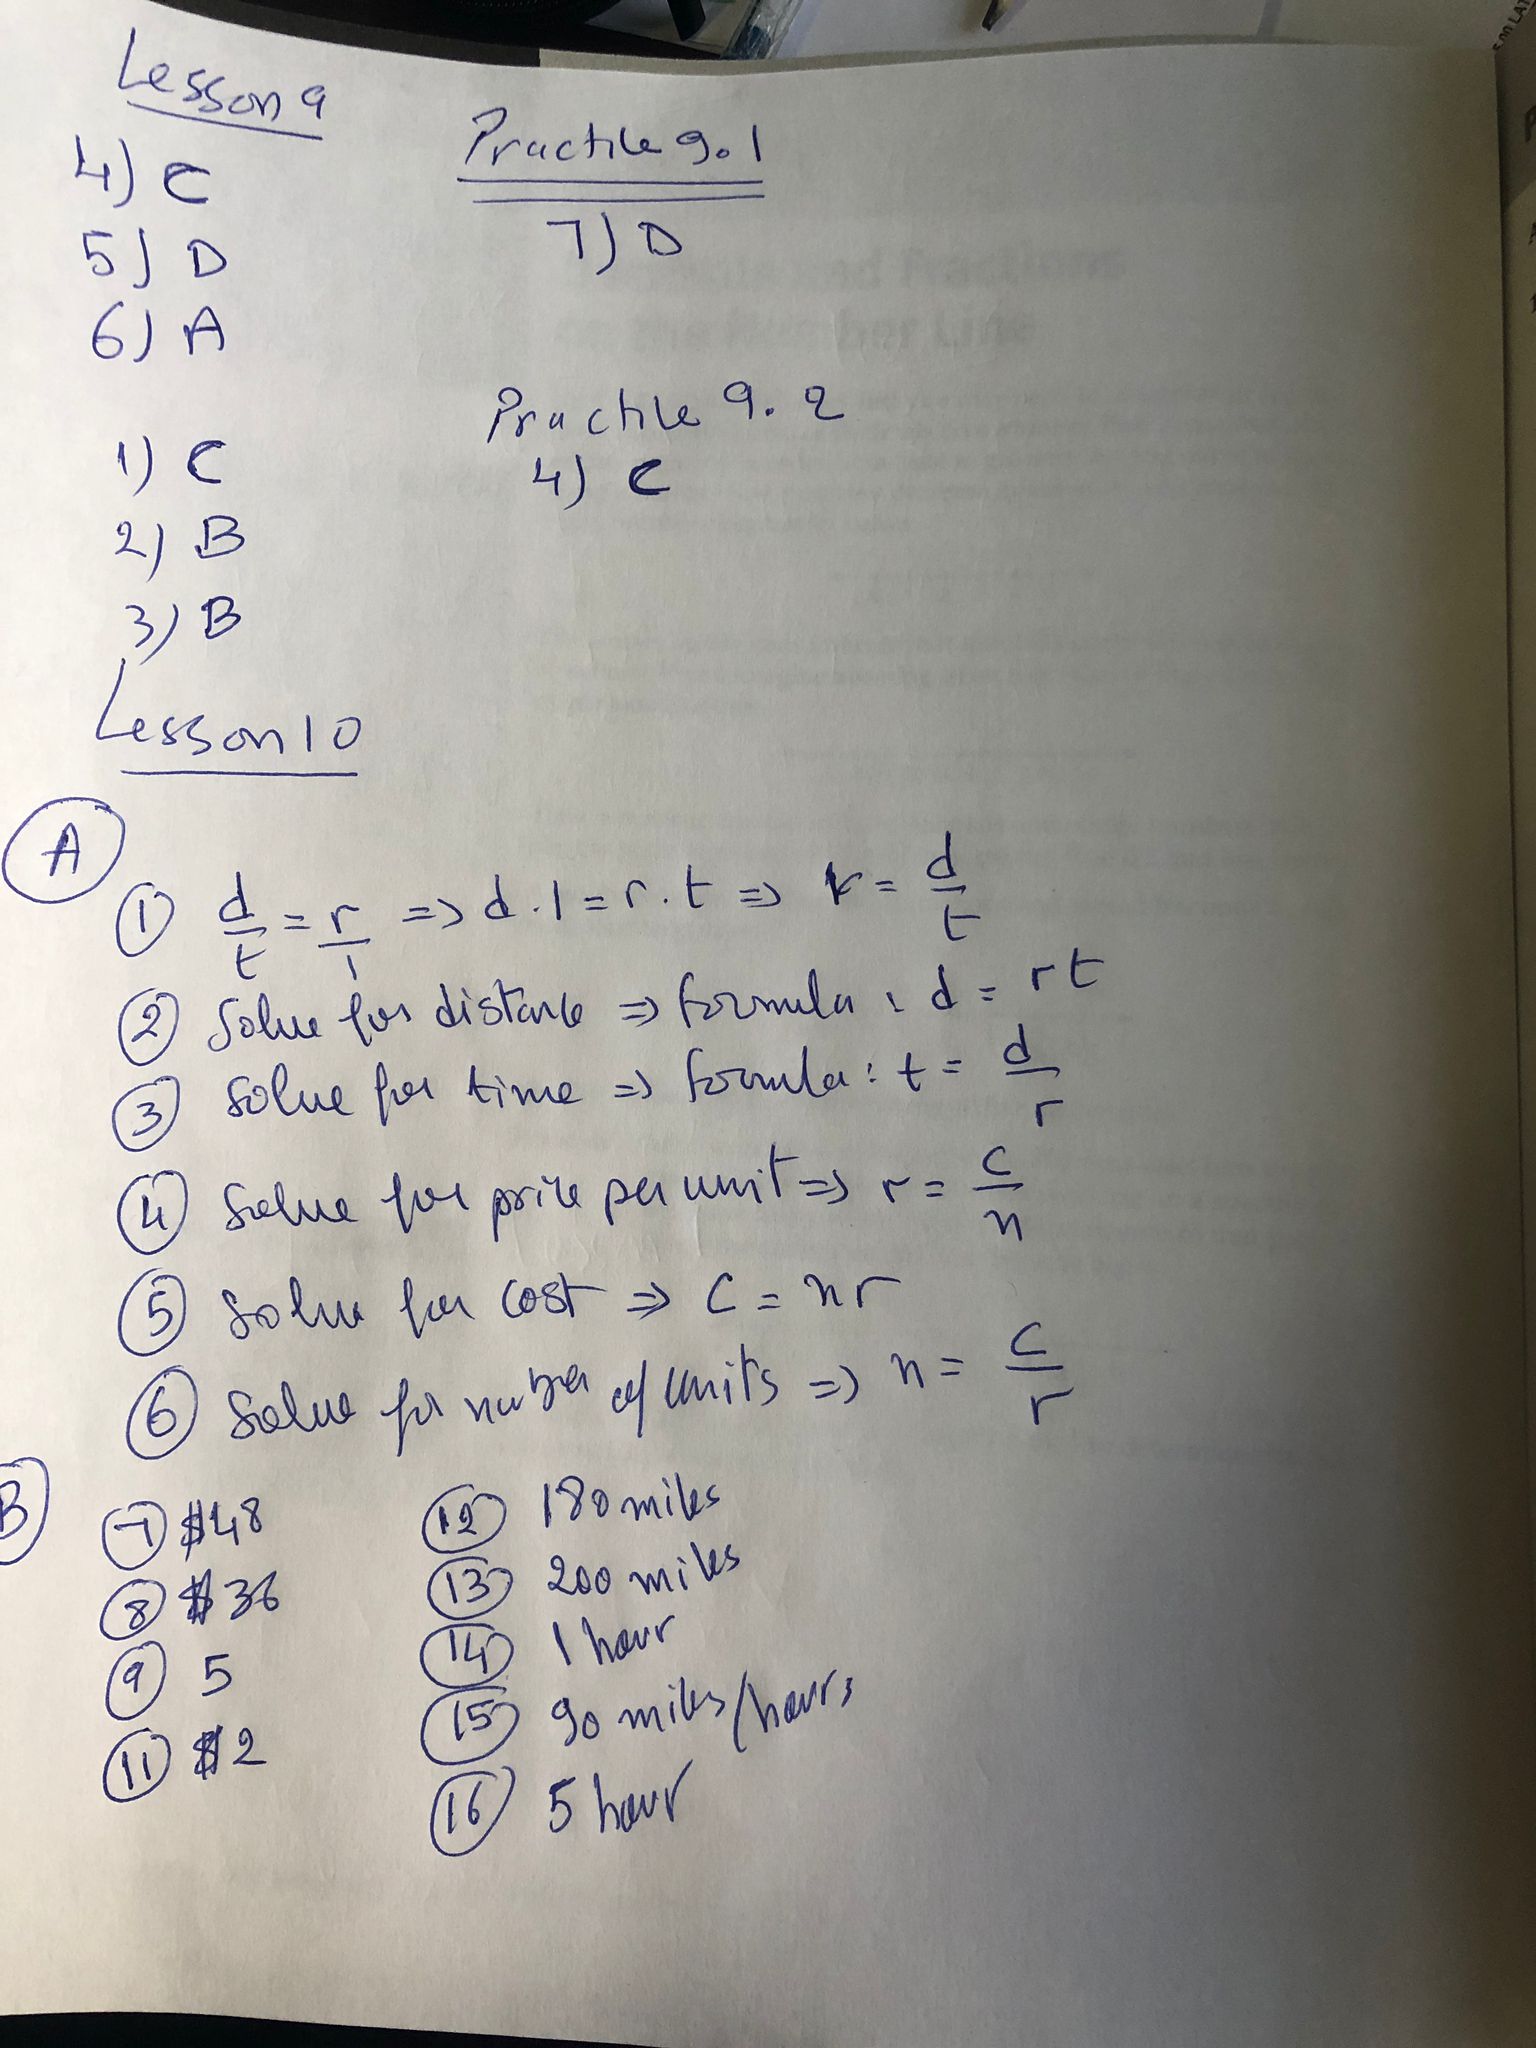 Lesson 9
4) C
5) D
6) A
1) C
2) B
3) B
Practice 9.1
7) D
Practice 9.2
4) C
Lesson 10
A
1 d/t = r/1 => d . 1 = r . t => r = d/t
2 Solve for distance => formula : d = rt
3 Solve for time => formula : t = d/r
4 Solve for price per unit => r = c/n
5 Solve for cost => C = nr
6 Solve for number of units => n = c/r
B
7 $48
8 $36
9 5
11 $2
12 180 miles
13 200 miles
14 1 hour
15 90 miles/hours
16 5 hour